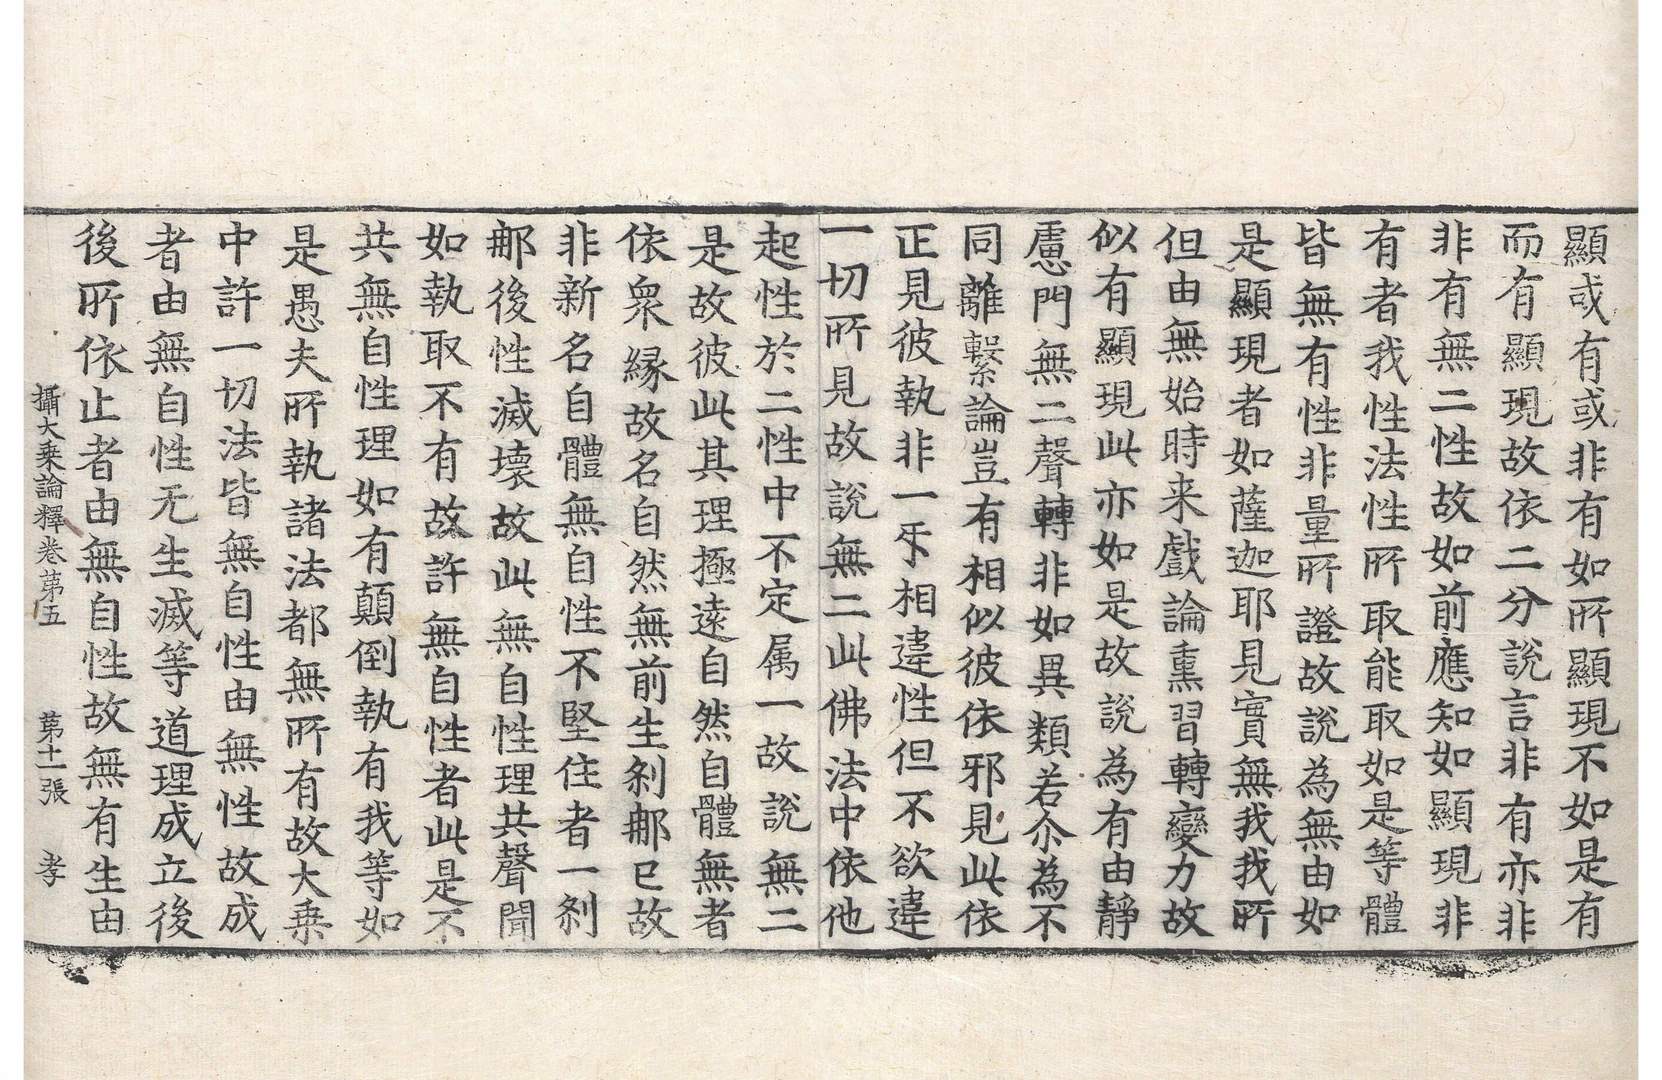 顯或有或非有如所顯現不如是有
而有顯現故依二分說言非有亦非
非有無二性故如前應知如顯現非
有者我性法性所取能取如是等體
皆無有性非量所證故說為無由如
是顯現者如薩迦耶見實無我我所
但由無始時来戲論熏習轉變力故
似有顯現此亦如是故說為有由靜
慮門無二聲轉非如異類若尒為不
同離繫論豈有相似彼依邪見此依
正見彼執非一㸦相違性但不欲違
一切所見故說無二此佛法中依他
起性於二性中不定属一故說無二
是故彼此其理極遠自然自體無者
依衆緣故名自然無前生剎那已故
非新名自體無自性不堅住者一剎
那後性滅壞故此無自性理共聲聞
如執取不有故許無自性者此是不
共無自性理如有顛倒執有我等如
是愚夫所執諸法都無所有故大乗
中許一切法皆無自性由無性故成
者由無自性无生滅等道理成立後
後所依止者由無自性故無有生由
攝大乗論釋卷第五　第十一張　孝